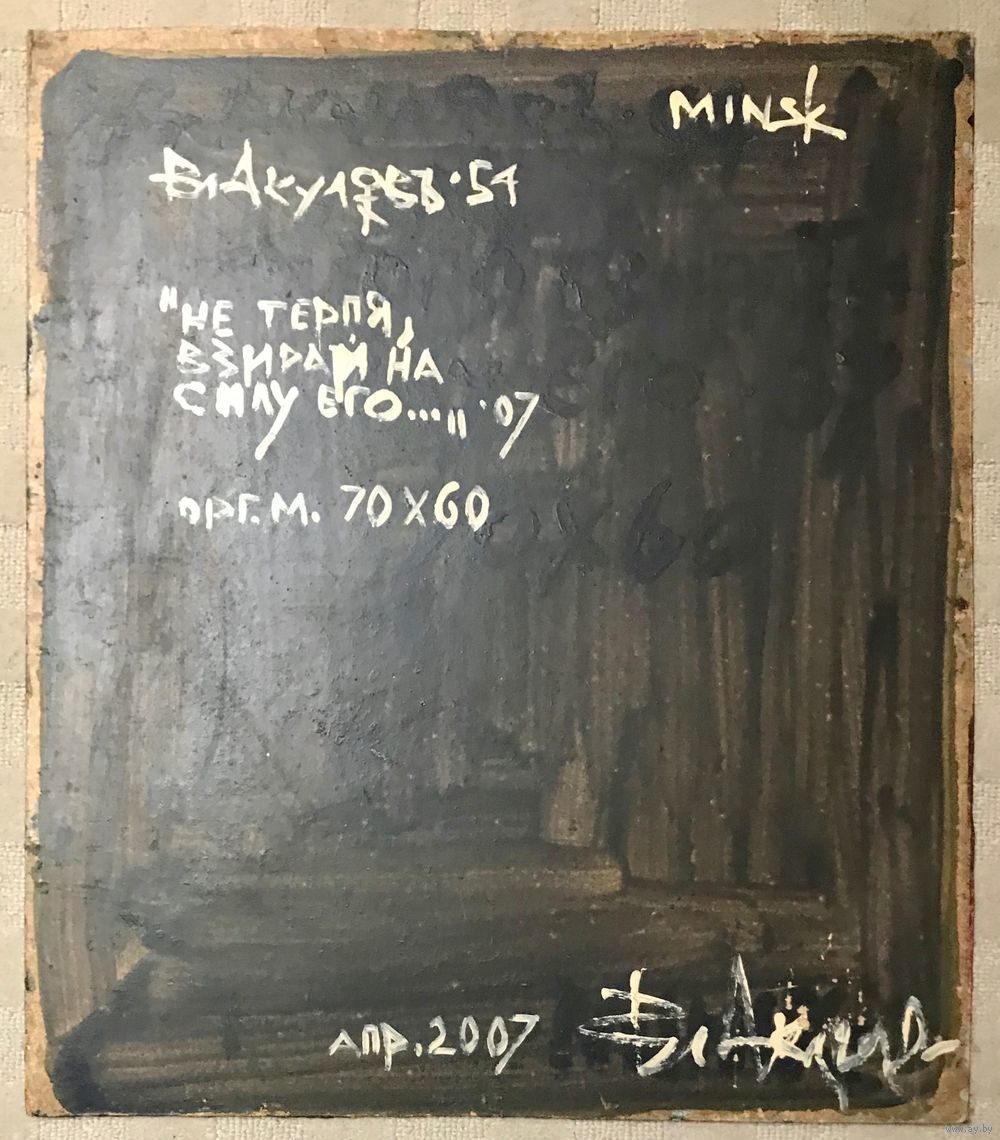 MINSK
Вл Акуловъ·54
"НЕ ТЕРПЯ,
ВЗИРАЙ НА
СИЛУ ЕГО..." '07
орг.М. 70X60
апр.2007
www.ay.by